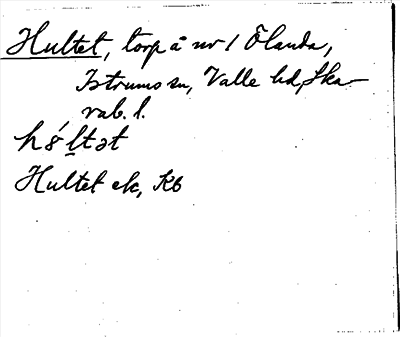 Hultet, torp å nr 1 Ölanda,
Istrums sn, Valle hd, Ska-
rab. l.
h8́ltət
Hultet ek, Kb